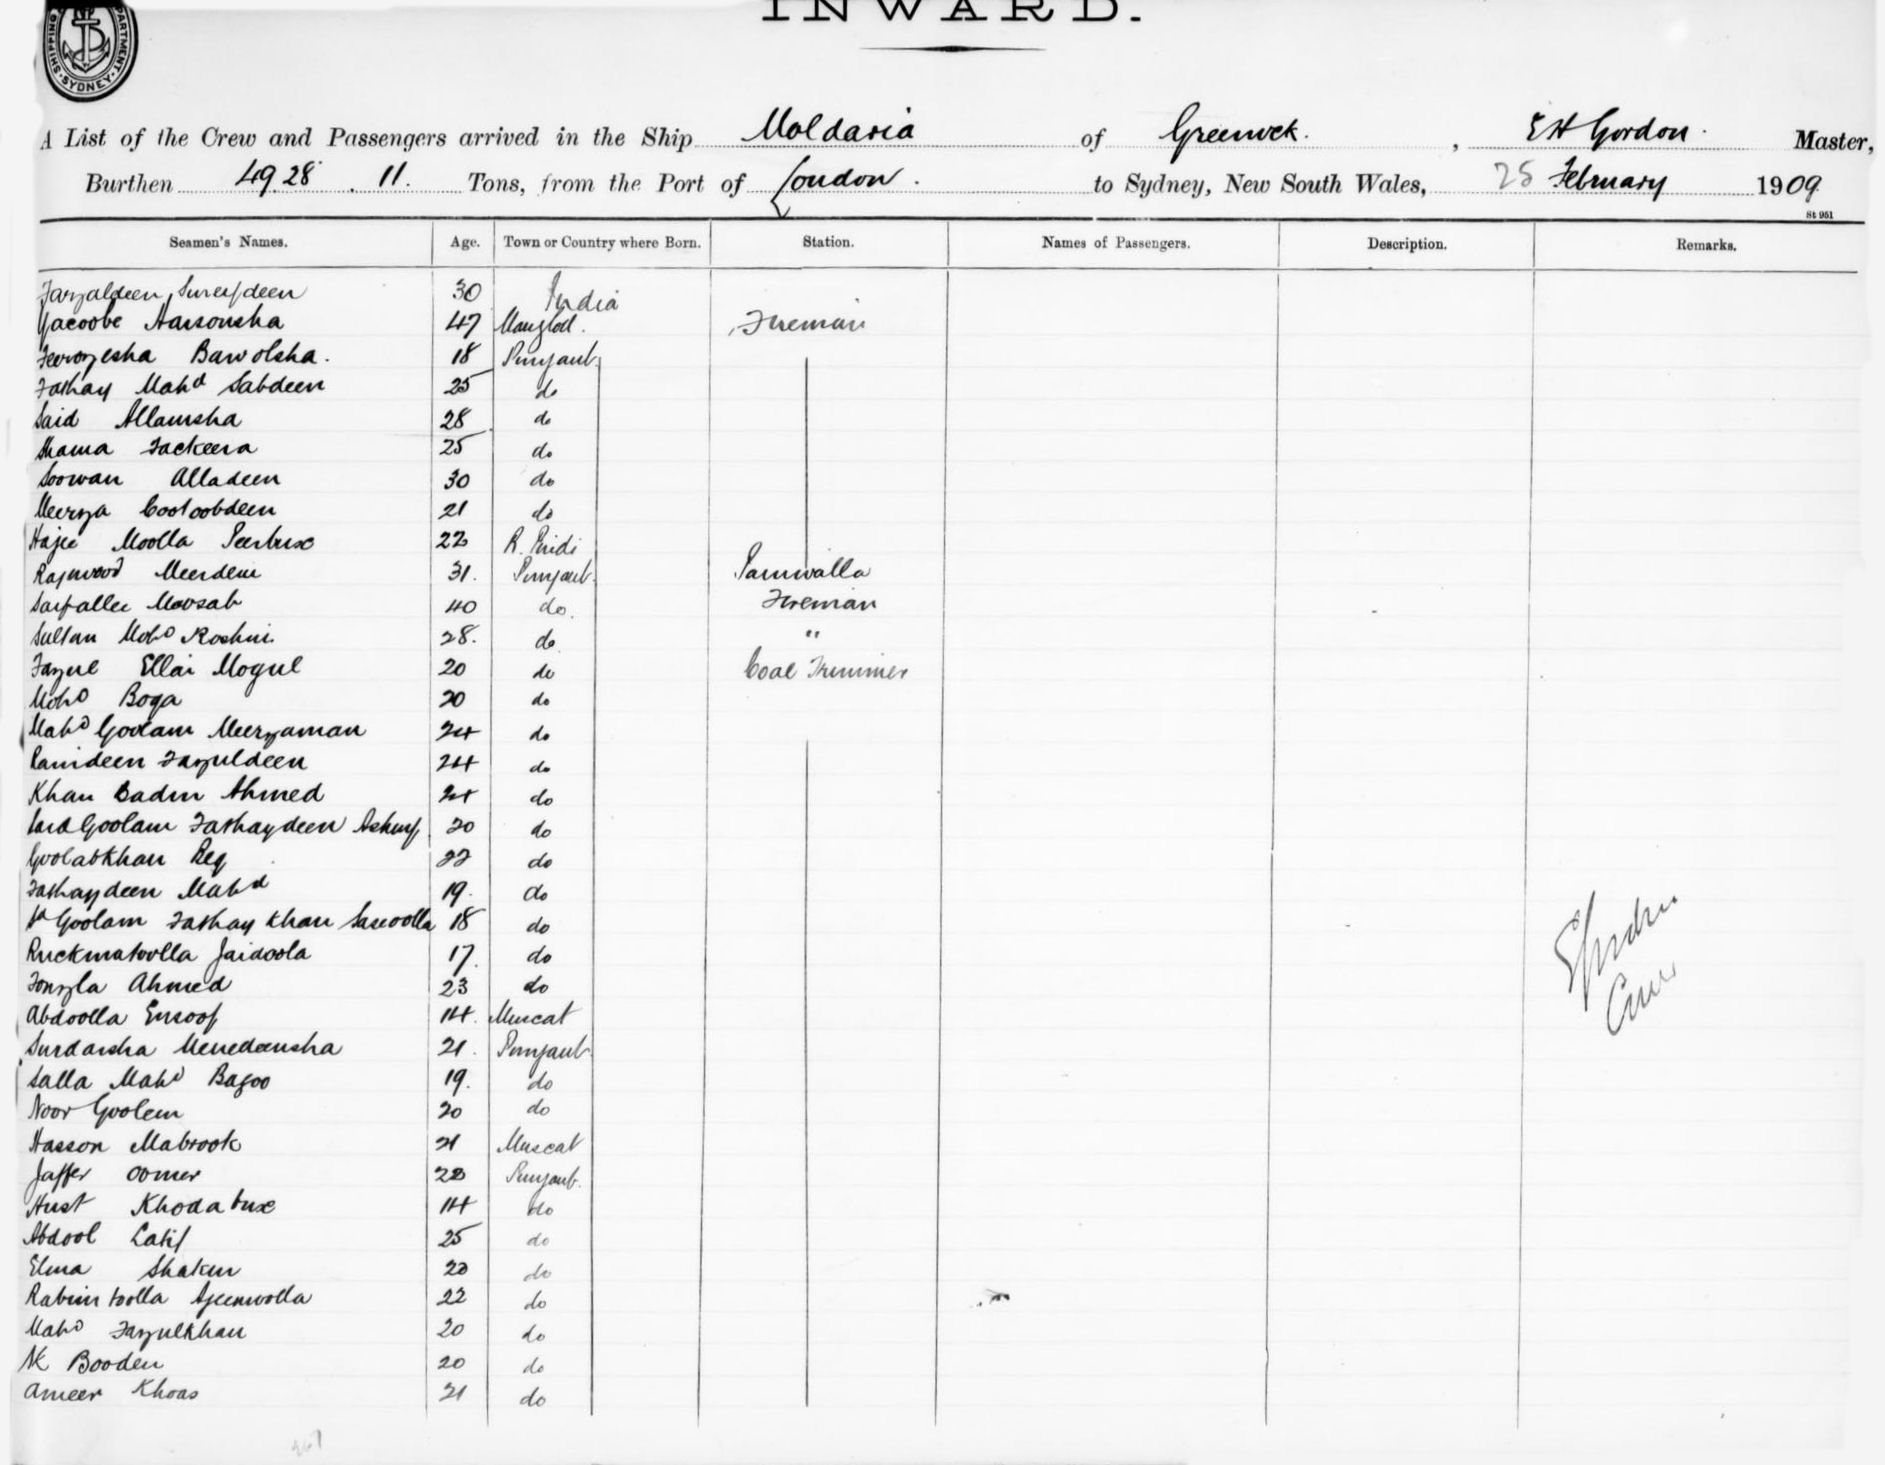 INWARD.
SHIPPING DEPARTMENT SYDNEY
A List of the Crew and Passengers arrived in the Ship Moldavia of Greenock. , E H Gordon. Master,
Burthen 4928 . 11. Tons, from the Port of London. to Sydney, New South Wales, 25 February 1909
St 951
Seamen's Names. Age. Town or Country where Born. Station. Names of Passengers. Description. Remarks.
Fazaldeen 30 India
Yacoobe 47 Fireman
Bawolsha. 18 Punjaub
Fathay Mahd Sabdeen 25 do
Said Allamsha 28 do
Shama Fackeera 25 do
Soowan Alladeen 30 do
Meerza Cootoobdeen 21 do
Hajee Moolla Peerbux 22 R. Pindi
Meerdein 31. Punjaub Paniwalla
40 do. Fireman
Sultan Mohd Roshni 28. do "
Fazul Ellai Mogul 20 do Coal Trimmer
Mohd Boga 20 do
Mahd Goolam Meerzaman 24 do
Ramdeen Fazuldeen 24 do
Khan Ahmed 24 do
Goolam Fathaydeen 20 do
Goolabkhan Beg 22 do
Fathaydeen Mahd 19. do
Goolam Fathay Khan 18 do
Ruckmatoolla Jaidoola 17. do
Ahmed 23 do
Abdoolla Eusoof 14. Muscat
Surdarsha 21. Punjaub
Salla Mahd Bagoo 19. do
Noor Goolem 20 do
Hasson Mabrook 21 Muscat
Jaffer Oomer 22 Punjaub.
Khodabux 14 do
Abdool Latif 25 do
Elma 20 do
22 do
Mahd Fazulkhan 20 do
NK Booden 20 do
Ameer Khoas 21 do